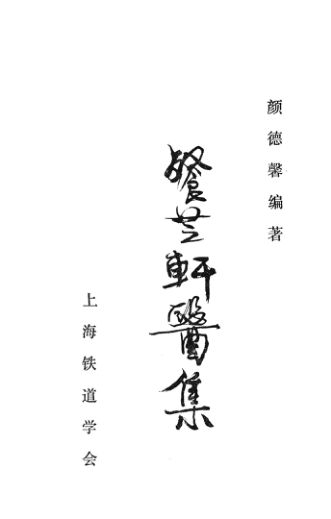 颜德馨编著
餐芝軒醫集
上海铁道学会